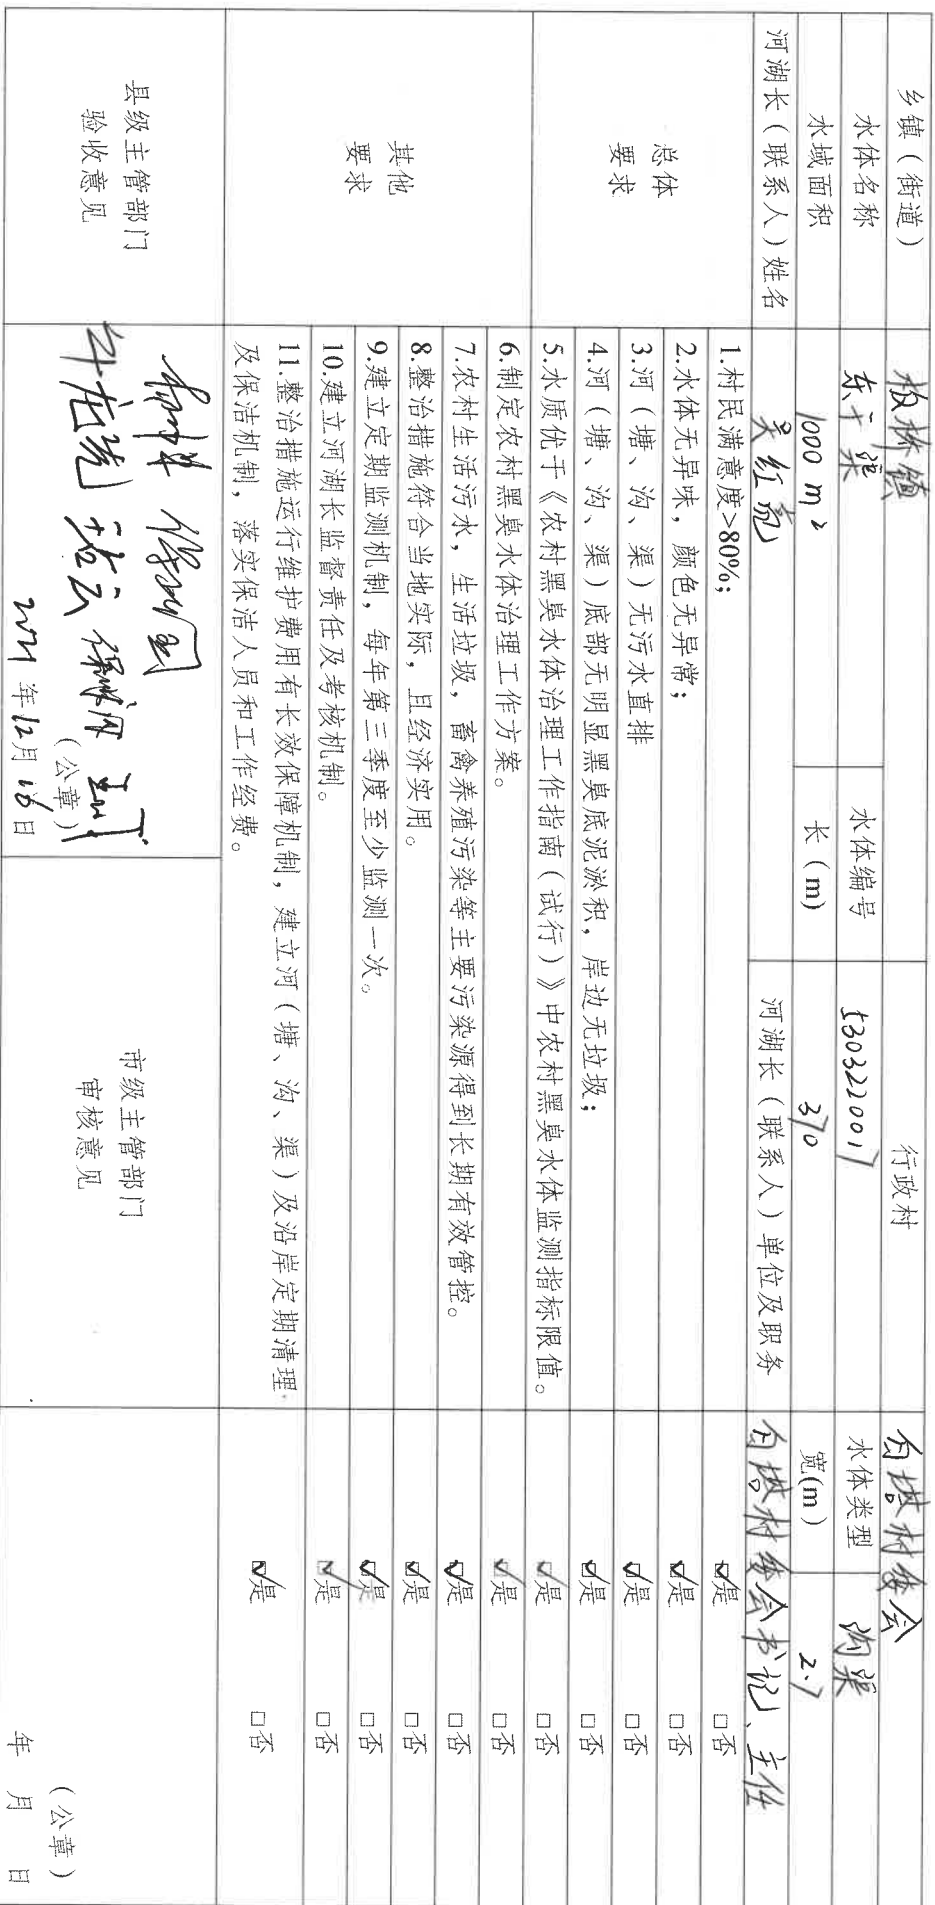 乡镇（街道） 板桥镇 行政村 白塔村委会
水体名称 东干渠 水体编号 530322001 水体类型 沟渠
水域面积 1000 m² 长（m） 370 宽(m) 2.7
河湖长（联系人）姓名 吴红亮 河湖长（联系人）单位及职务 白塔村委会书记、主任
总体
要求
1.村民满意度>80%； ☑是 □否
2.水体无异味，颜色无异常； ☑是 □否
3.河（塘、沟、渠）无污水直排 ☑是 □否
4.河（塘、沟、渠）底部无明显黑臭底泥淤积，岸边无垃圾； ☑是 □否
5.水质优于《农村黑臭水体治理工作指南（试行）》中农村黑臭水体监测指标限值。 ☑是 □否
其他
要求
6.制定农村黑臭水体治理工作方案。 ☑是 □否
7.农村生活污水，生活垃圾，畜禽养殖污染等主要污染源得到长期有效管控。 ☑是 □否
8.整治措施符合当地实际，且经济实用。 ☑是 □否
9.建立定期监测机制，每年第三季度至少监测一次。 ☑是 □否
10.建立河湖长监督责任及考核机制。 ☑是 □否
11.整治措施运行维护费用有长效保障机制，建立河（塘、沟、渠）及沿岸定期清理
及保洁机制，落实保洁人员和工作经费。 ☑是 □否
县级主管部门
验收意见
（公章）
2021年12月16日
市级主管部门
审核意见
（公章）
年 月 日